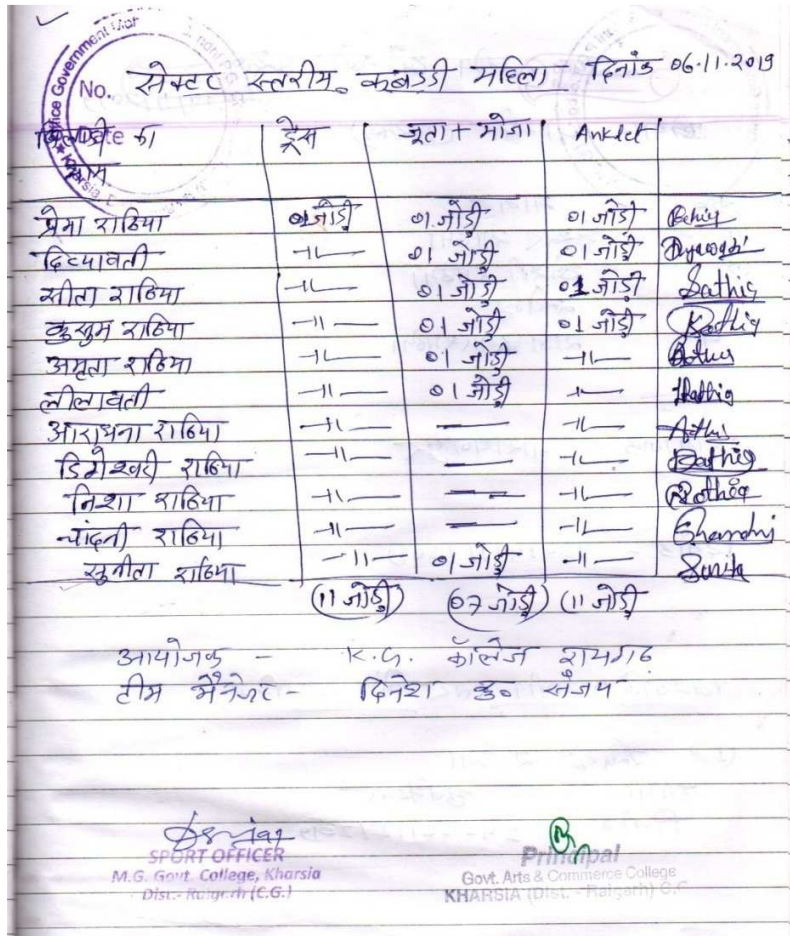 No. सेक्टर स्तरीय कबड्डी महिला दिनांक 06.11.2019
खिलाड़ी का नाम ड्रेस जूता + मोजा Anklet
प्रेमा राठिया 01 जोड़ी 01 जोड़ी 01 जोड़ी
दिव्यावती -॥- 01 जोड़ी 01 जोड़ी
सीता राठिया -॥- 01 जोड़ी 01 जोड़ी Sathia
कुसुम राठिया -॥- 01 जोड़ी 01 जोड़ी Rathia
अमृता राठिया -॥- 01 जोड़ी -॥-
लीलावती -॥- 01 जोड़ी -॥-
आराधना राठिया -॥- — -॥-
डिगेश्वरी राठिया -॥- — -॥- Rathia
निशा राठिया -॥- — -॥-
चांदनी राठिया -॥- — -॥- Chandni
सुनीता राठिया -॥- 01 जोड़ी -॥- Sunita
(11 जोड़ी) (07 जोड़ी) (11 जोड़ी
आयोजक - K.G. कॉलेज रायगढ़
टीम मैनेजर - दिनेश कु० संजय
SPORT OFFICER
M.G. Govt. College, Kharsia
Dist.- Raigarh (C.G.)
Principal
Govt. Arts & Commerce College
KHARSIA (Dist. - Raigarh) C.G